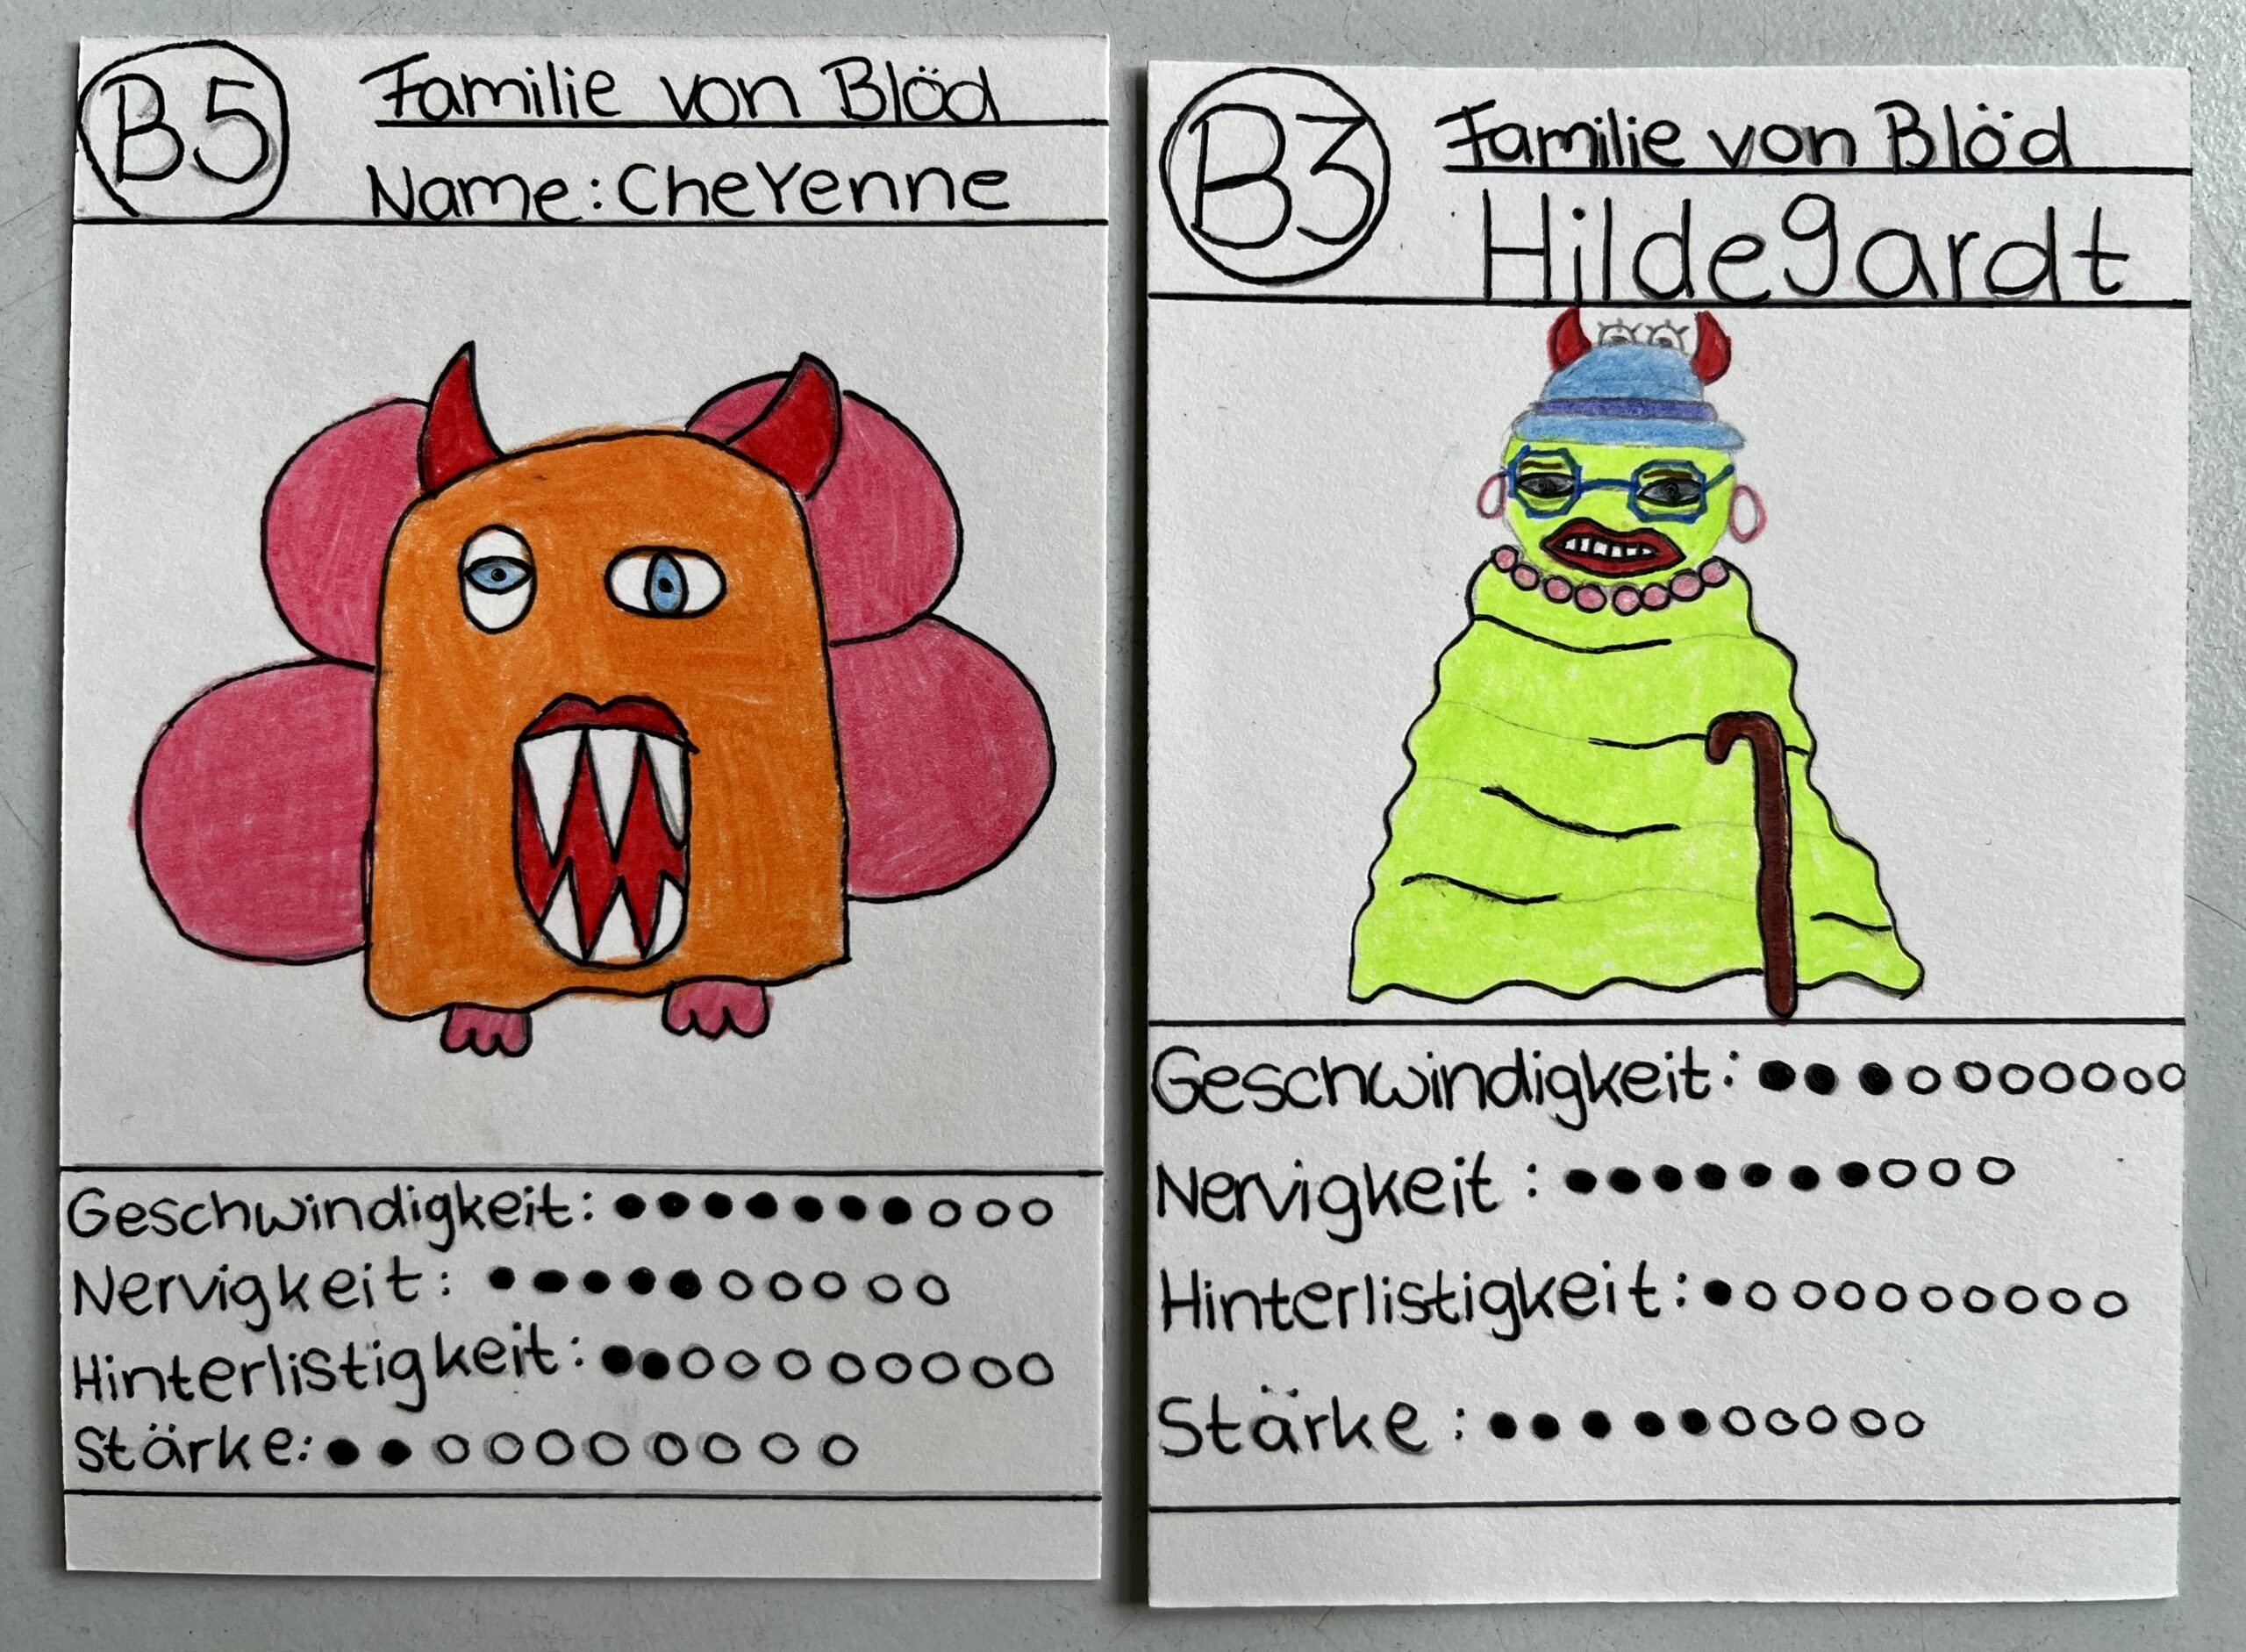 B5
Familie von Blöd
Name: CheYenne
Geschwindigkeit: ●●●●●●●○○○
Nervigkeit: ●●●●●○○○○○
Hinterlistigkeit: ●●○○○○○○○○
Stärke: ●●○○○○○○○○
B3
Familie von Blöd
Hildegardt
Geschwindigkeit: ●●●○○○○○○○
Nervigkeit: ●●●●●●●○○○
Hinterlistigkeit: ●○○○○○○○○○
Stärke: ●●●●●○○○○○